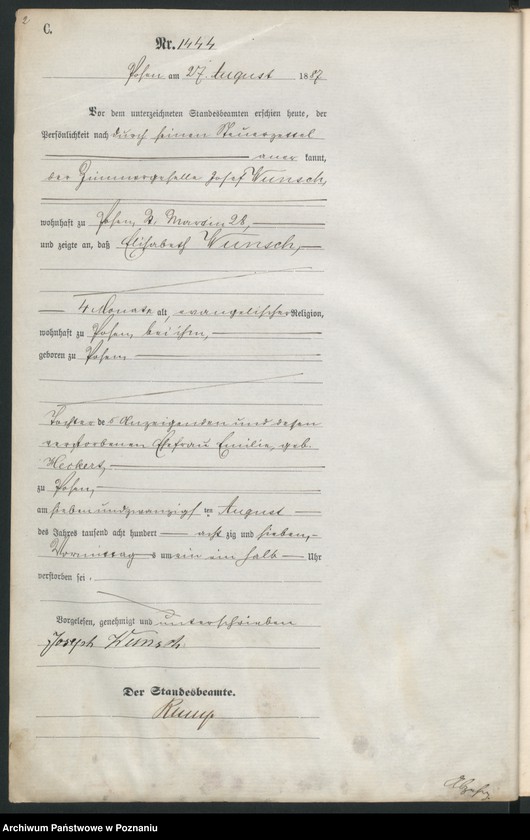 2
C.
Nr. 1444
Posen am 27. August 1887
Vor dem unterzeichneten Standesbeamten erschien heute, der
Persönlichkeit nach durch seinen Steuerzettel
aner kannt,
der Zimmergeselle Josef Wunsch,
wohnhaft zu Posen, St. Martin 28,
und zeigte an, daß Elisabeth Wunsch,
4 Monate alt, evangelischer Religion,
wohnhaft zu Posen, bei ihm,
geboren zu Posen
Tochter des Anzeigenden und dessen
verstorbenen Ehefrau Emilie, geb.
Heckert,
zu Posen,
am siebenundzwanzigsten August
des Jahres tausend acht hundert acht zig und sieben,
Vormittags um ein ein halb Uhr
verstorben sei.
Vorgelesen, genehmigt und unterschrieben
Joseph Wunsch
Der Standesbeamte.
Rump
Archiwum Państwowe w Poznaniu